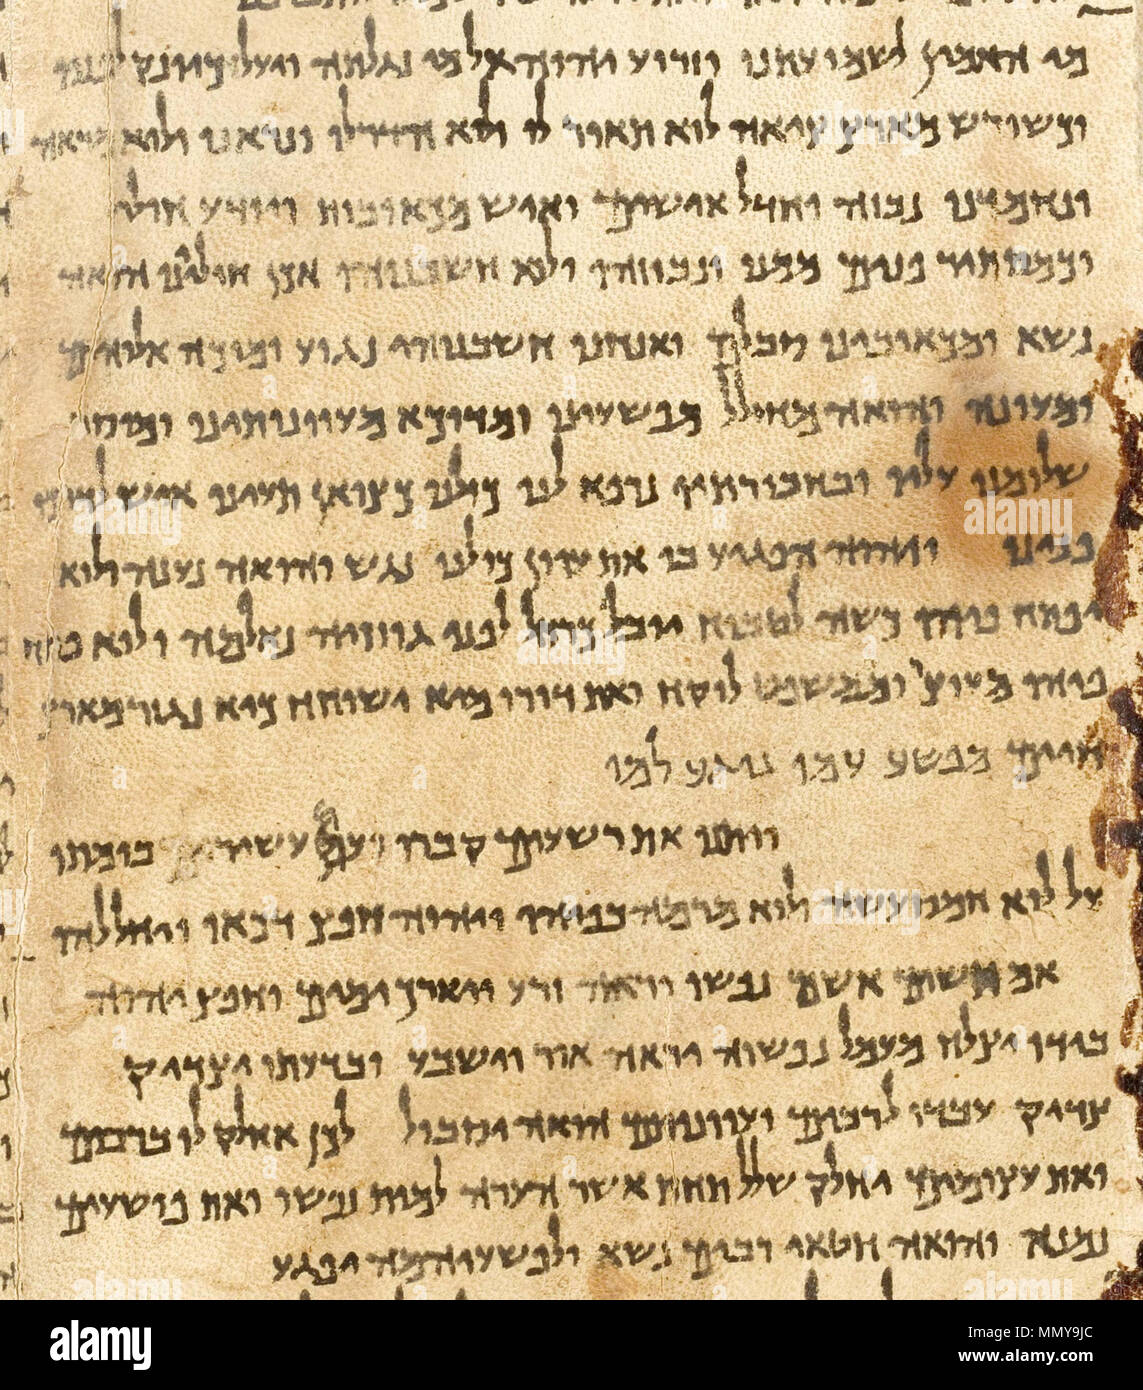 מי האמין לשמועתנו וזרוע יהוה אל מי נגלתה ויעל כיונק לפניו
וכשורש מארץ ציאה לוא תאור לו ולא הדר לו ונראנו ולוא מראה
ונחמדנו נבזה וחדל אישים ואיש מכאובות ויודע חולי
וכמסתר פנים ממנו ונבוזהו ולא חשבנוהו אכן חוליינו הואה
נשא ומכאובינו סבלם ואנחנו חשבנוהו נגוע ומוכה אלוהים
ומעונה והואה מחולל מפשעינו ומדוכא מעוונותינו ומוסר
שלומנו עליו ובחבורתיו נרפא לנו כולנו כצואן תעינו איש לדרכו
פנינו ויהוה הפגיע בו את עוון כולנו נגש והואה נענה ולוא
יפתח פיהו כשה לטבוח יובל כרחל לפני גוזזיה נאלמה ולוא פתח
פיהו מעוצר וממשפט לוקח ואת דורו מיא ישוחח כיא נגזר מארץ
חיים מפשע עמו נוגע למו
ויתנו את רשעים קברו ועם עשיר בומתו
על לוא חמס עשה ולוא מרמה בפיהו ויהוה חפץ דכאו ויחללהו
אם תשים אשם נפשו יראה זרע ויארך ימים וחפץ יהוה
בידו יצלח מעמל נפשוה יראה אור וישבע ובדעתו יצדיק
צדיק עבדו לרבים ועוונותם הואה יסבול לכן אחלק לו ברבים
ואת עצומים יחלק שלל תחת אשר הערה למות נפשו ואת פושעים
נמנא והואה חטאי רבים נשא ולפשעיהמה יפגע
alamy
Image ID: MMY9JC
www.alamy.com